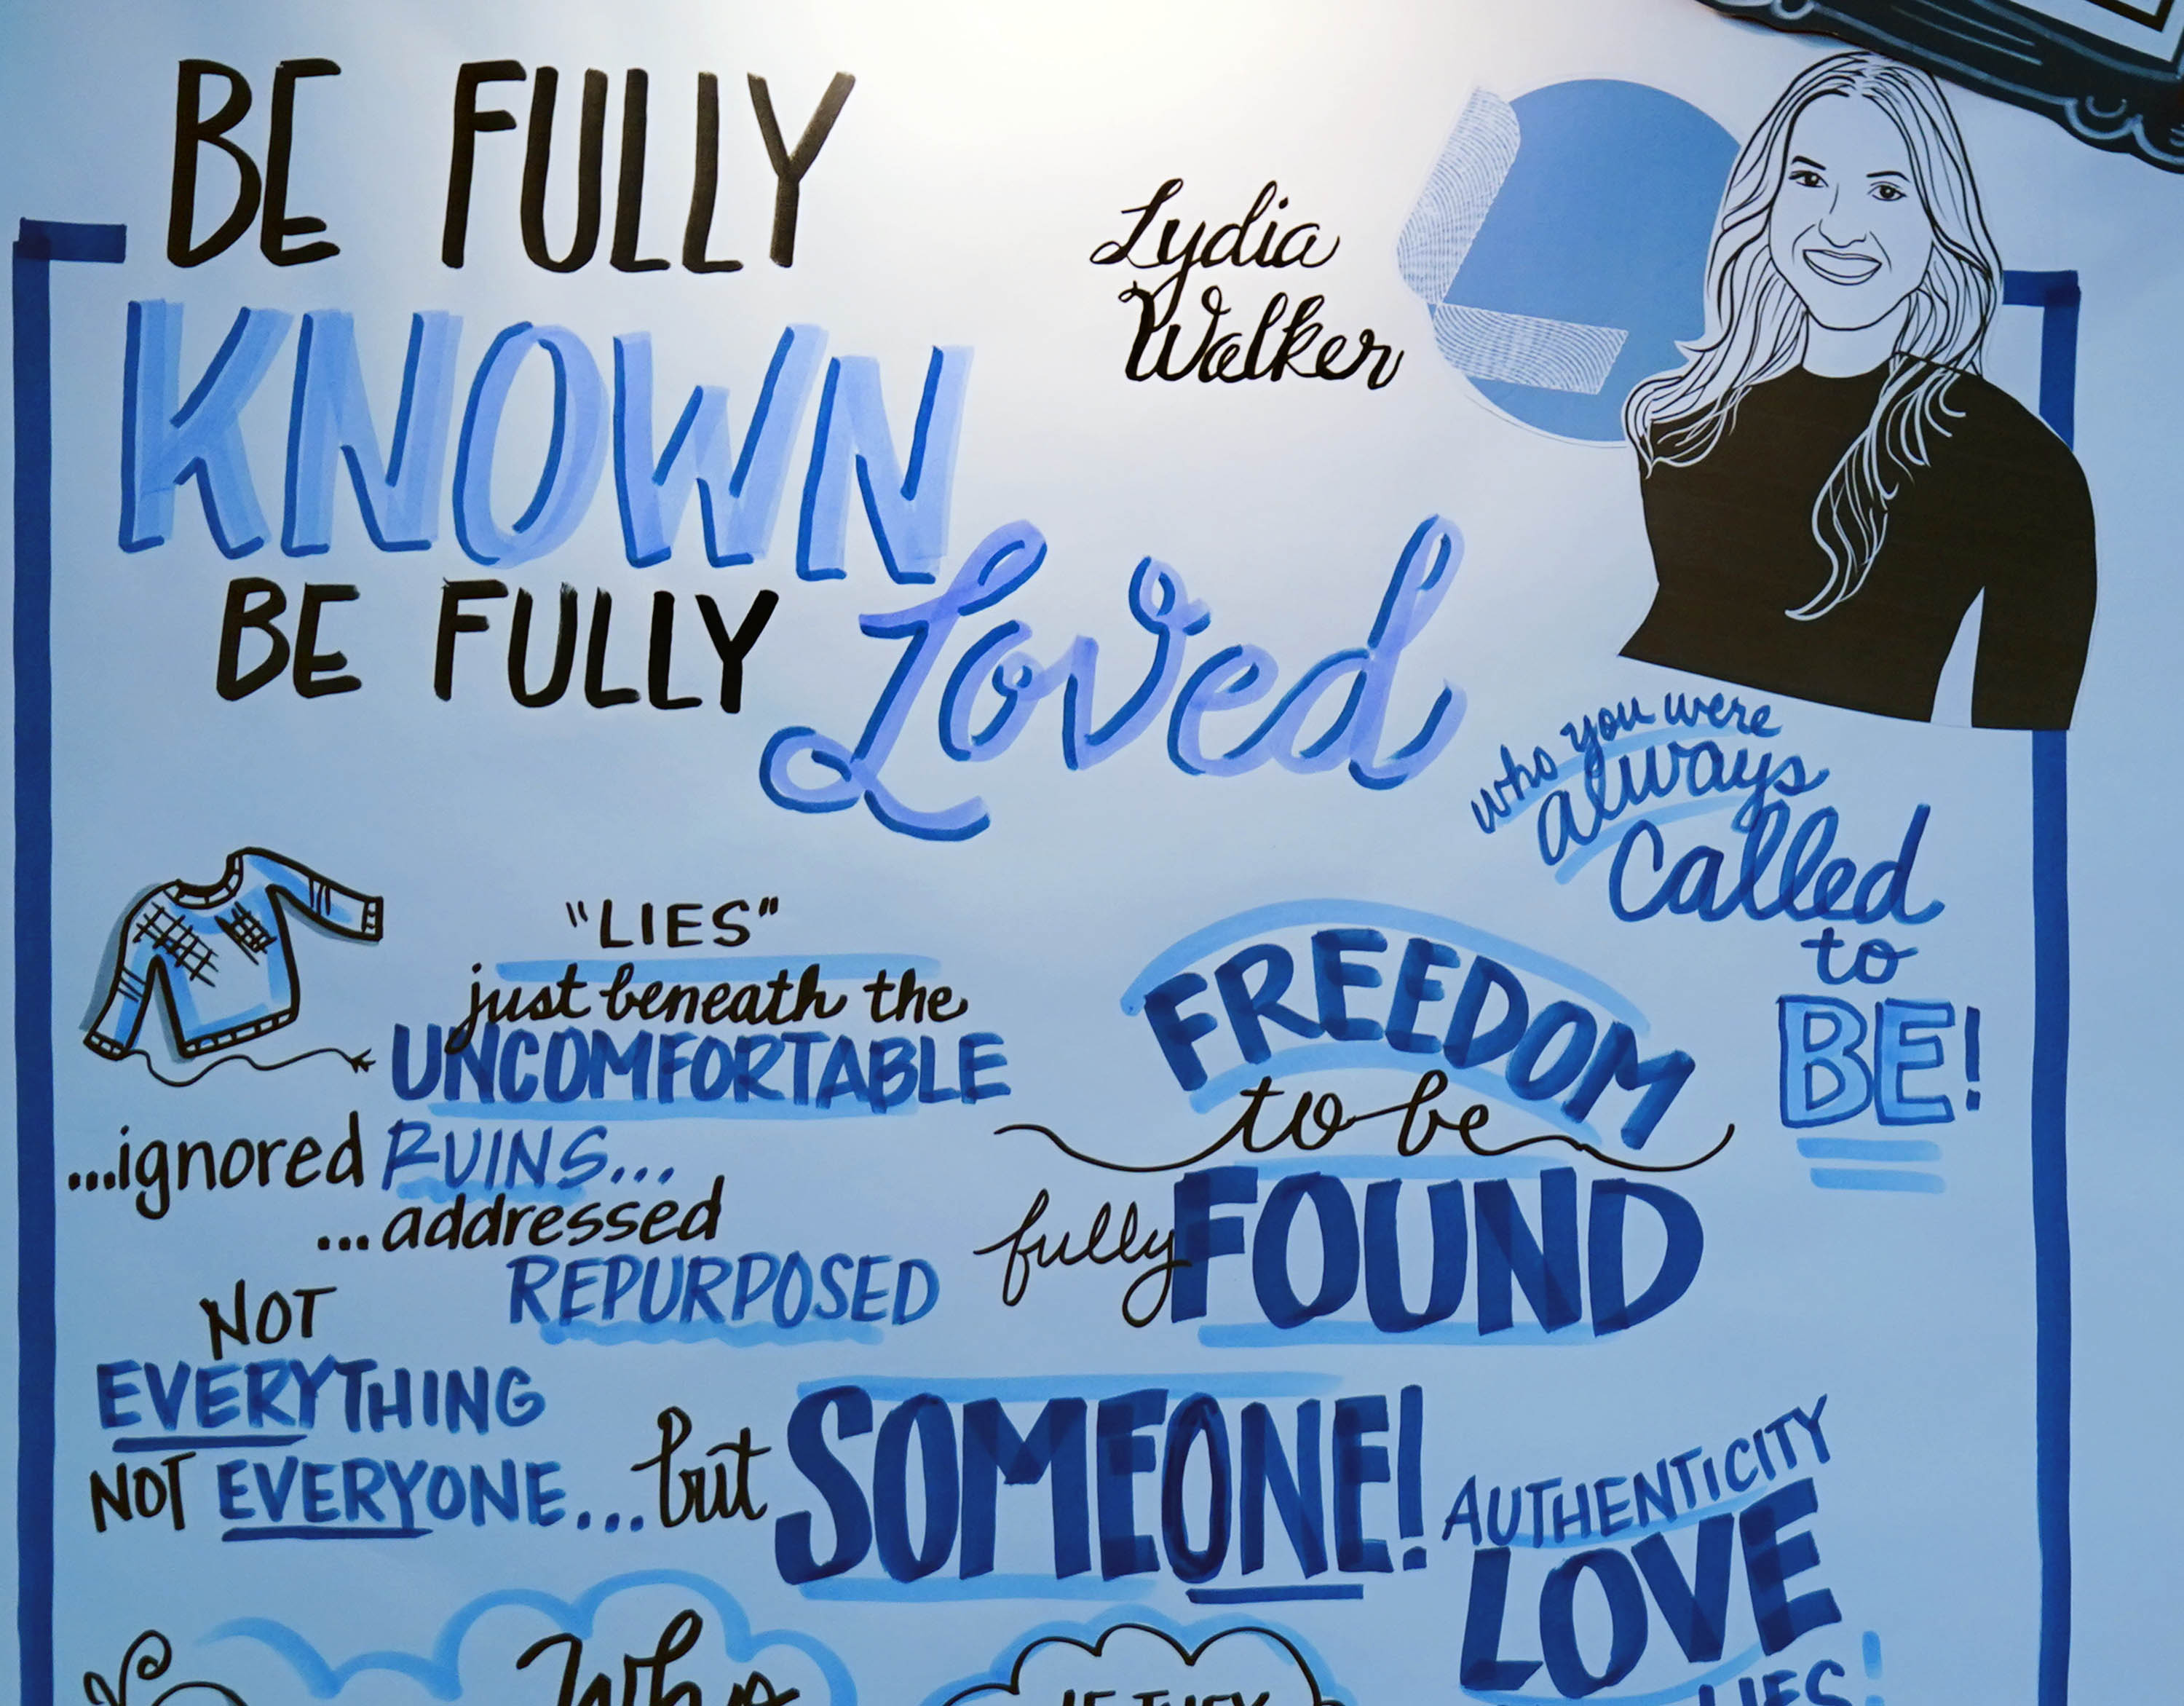 BE FULLY
KNOWN
BE FULLY Loved
Lydia
Walker
who you were
always
Called
to
BE!
"LIES"
just beneath the
UNCOMFORTABLE
...ignored RUINS...
...addressed
REPURPOSED
FREEDOM
to be
fully FOUND
NOT
EVERYTHING
NOT EVERYONE...but SOMEONE!
AUTHENTICITY
LOVE
Who
IF THEY